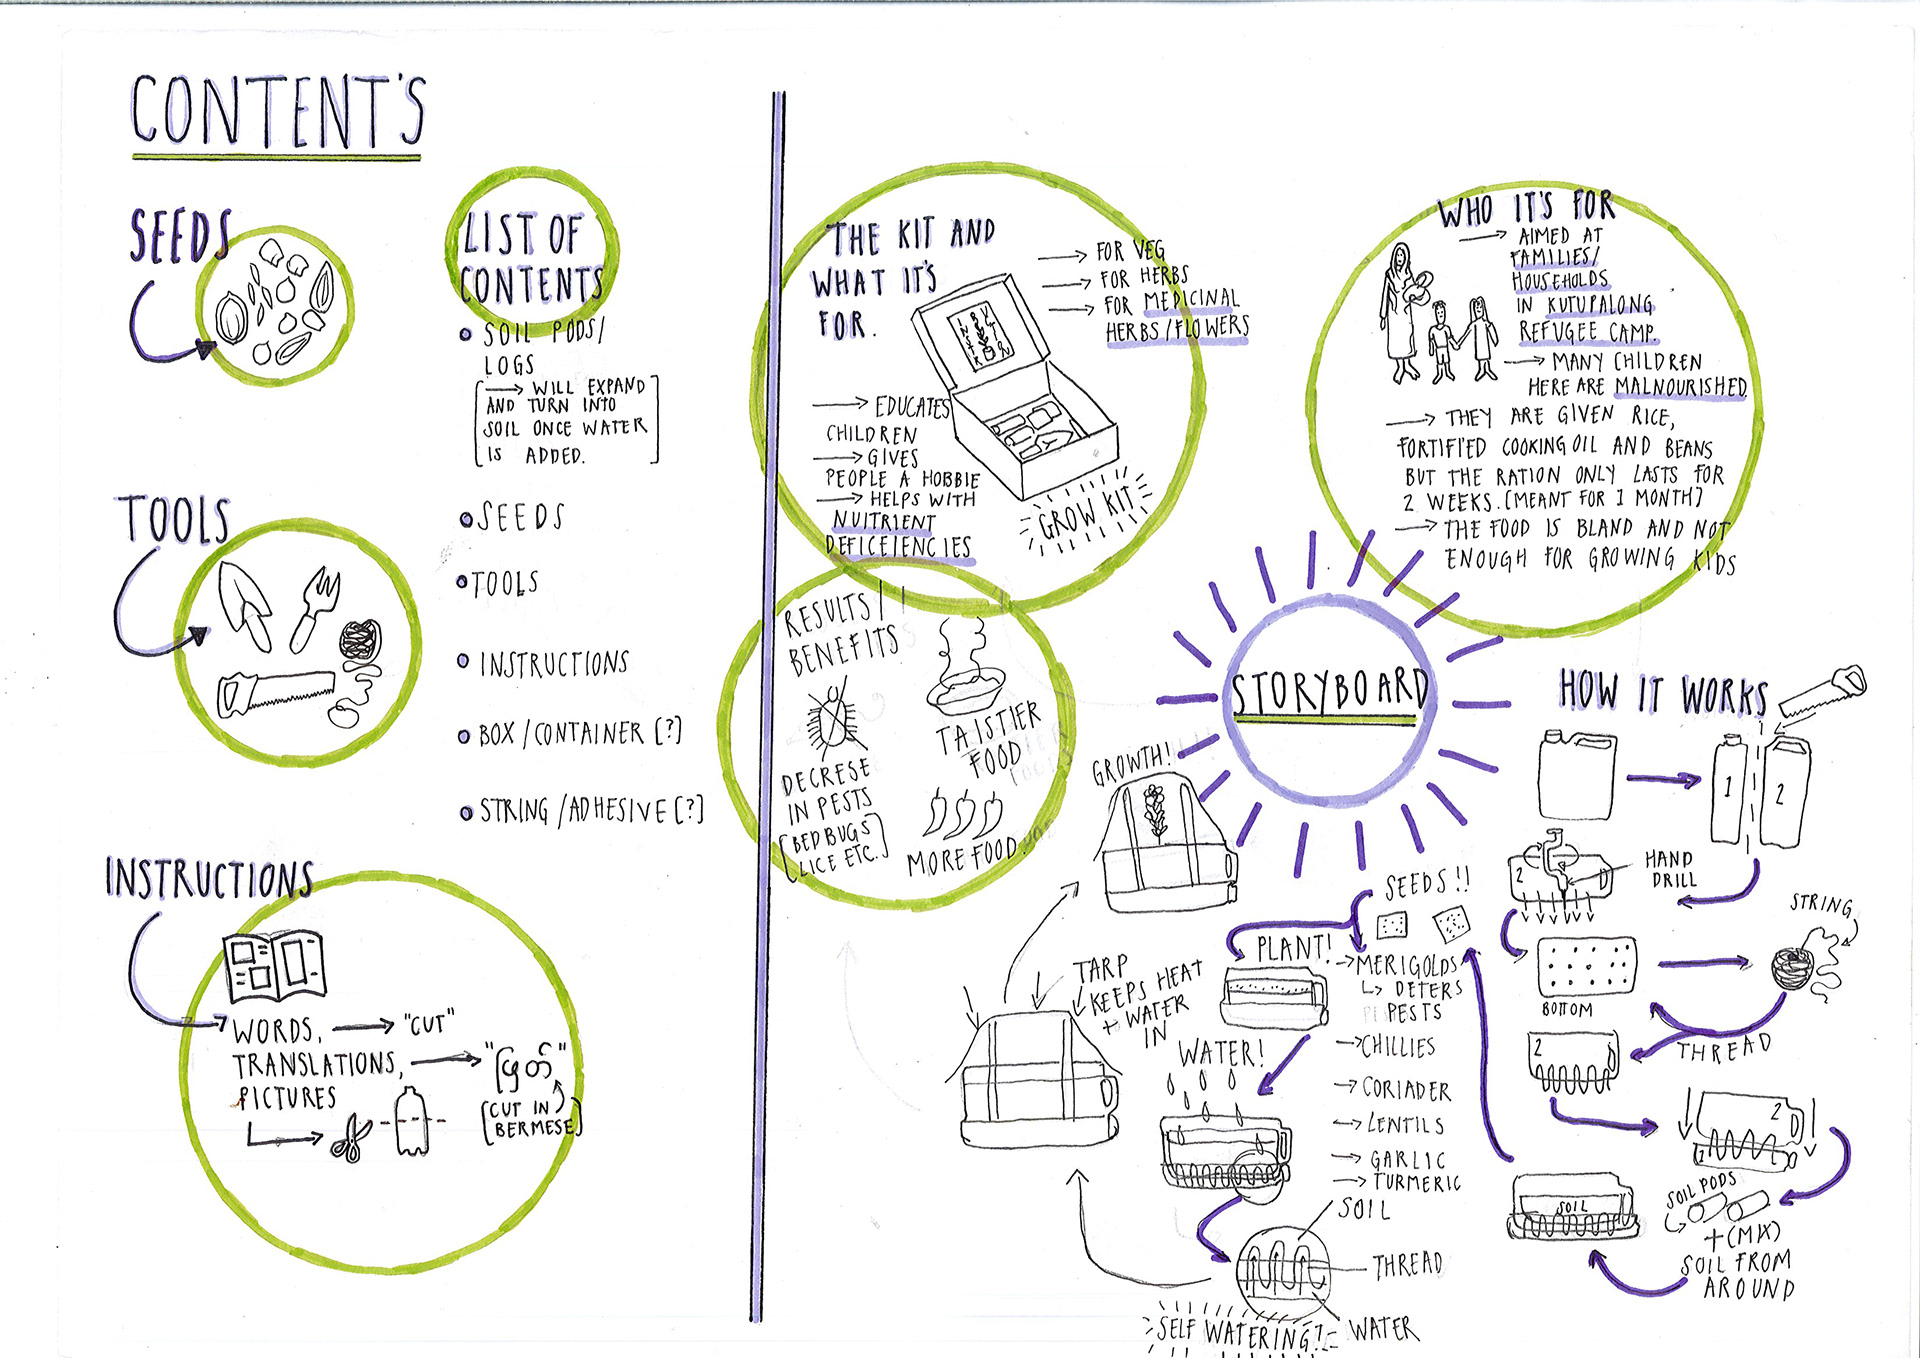 CONTENT'S
SEEDS
LIST OF
CONTENTS
SOIL PODS/
LOGS
[→ WILL EXPAND
AND TURN INTO
SOIL ONCE WATER
IS ADDED.]
SEEDS
TOOLS
INSTRUCTIONS
BOX/CONTAINER [?]
STRING/ADHESIVE [?]
TOOLS
INSTRUCTIONS
WORDS, → "CUT"
TRANSLATIONS, → "ဖြတ်"
PICTURES
[CUT IN
BERMESE]
THE KIT AND
WHAT IT'S
FOR.
→ FOR VEG
→ FOR HERBS
→ FOR MEDICINAL
HERBS/FLOWERS
→ EDUCATES
CHILDREN
→ GIVES
PEOPLE A HOBBIE
→ HELPS WITH
NUITRIENT
DEFICEIENCIES
GROW KIT
WHO IT'S FOR
→ AIMED AT
FAMILIES/
HOUSEHOLDS
IN KUTUPALONG
REFUGEE CAMP.
→ MANY CHILDREN
HERE ARE MALNOURISHED.
→ THEY ARE GIVEN RICE,
FORTIFIED COOKING OIL AND BEANS
BUT THE RATION ONLY LASTS FOR
2 WEEKS. [MEANT FOR 1 MONTH]
→ THE FOOD IS BLAND AND NOT
ENOUGH FOR GROWING KIDS
RESULTS/
BENEFITS
DECRESE
IN PESTS
[BED BUGS
LICE ETC.]
TAISTIER
FOOD
MORE FOOD
STORYBOARD
HOW IT WORKS
1
2
2
HAND
DRILL
STRING
BOTTOM
THREAD
2
2
1
SOIL PODS
+ (MIX)
SOIL FROM
AROUND
SOIL
SEEDS!!
→ MERIGOLDS
↳ DETERS
PESTS
→ CHILLIES
→ CORIADER
→ LENTILS
→ GARLIC
→ TURMERIC
PLANT!
WATER!
SOIL
THREAD
WATER
SELF WATERING!
TARP
KEEPS HEAT
+ WATER
IN
GROWTH!